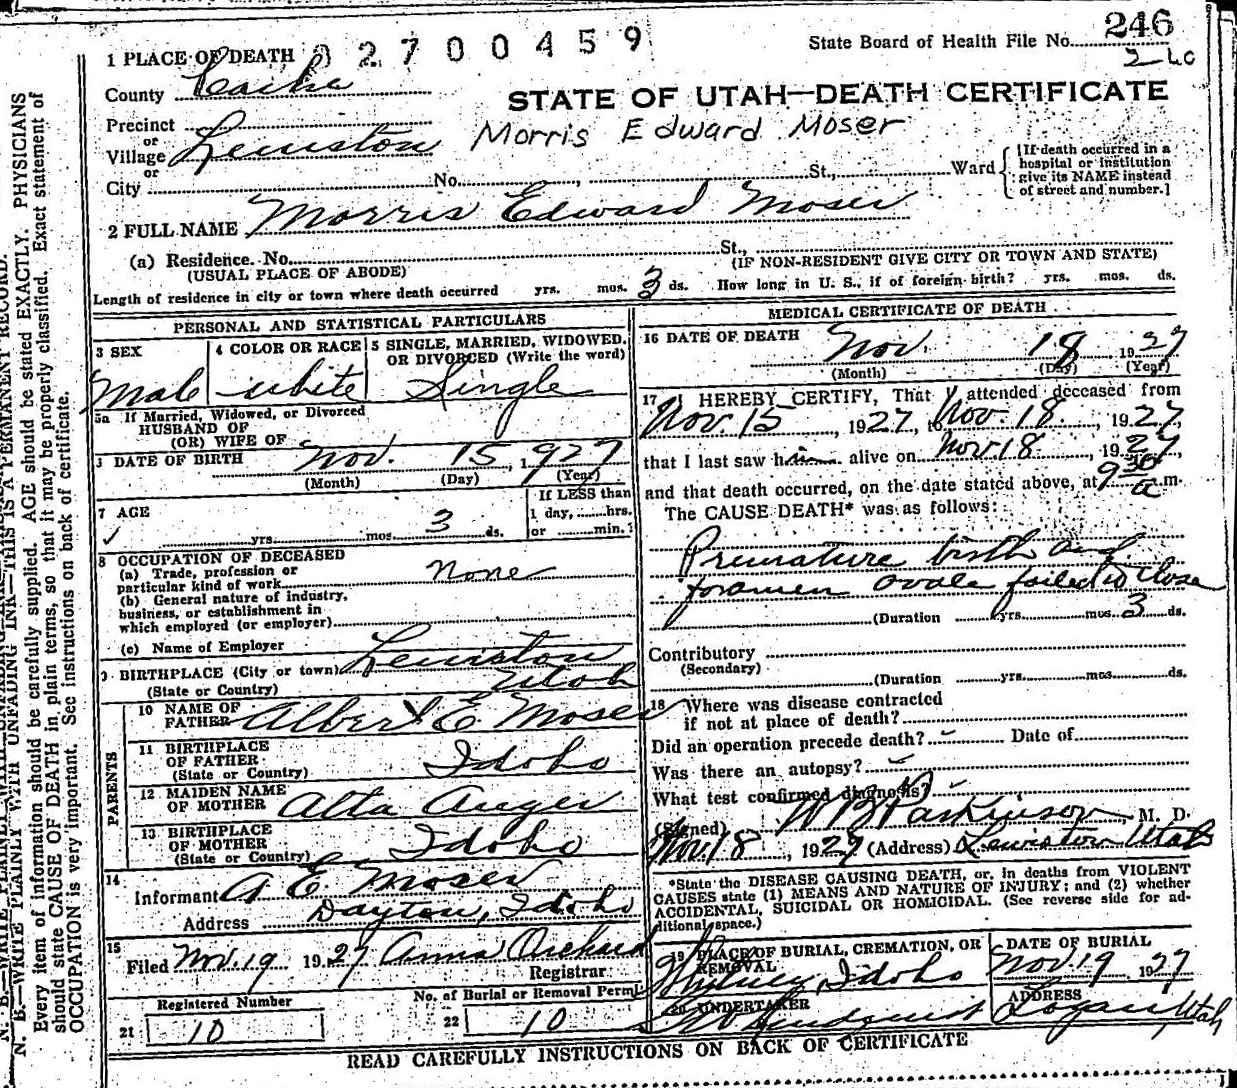 246
State Board of Health File No.
2-60
1 PLACE OF DEATH 02700459
County Cache
STATE OF UTAH—DEATH CERTIFICATE
Precinct
or
Village Lewiston
Morris Edward Moser
or
City No. St., Ward
[If death occurred in a
hospital or institution
give its NAME instead
of street and number.]
2 FULL NAME Morris Edward Moser
(a) Residence. No. St.,
(USUAL PLACE OF ABODE) (IF NON-RESIDENT GIVE CITY OR TOWN AND STATE)
Length of residence in city or town where death occurred yrs. mos. 3 ds. How long in U. S., if of foreign birth? yrs. mos. ds.
PERSONAL AND STATISTICAL PARTICULARS
3 SEX
Male
4 COLOR OR RACE
white
5 SINGLE, MARRIED, WIDOWED,
OR DIVORCED (Write the word)
Single
5a If Married, Widowed, or Divorced
HUSBAND OF
(OR) WIFE OF
DATE OF BIRTH Nov. 15, 1927
(Month) (Day) (Year)
7 AGE
yrs. mos. 3 ds.
If LESS than
1 day, hrs.
or min.
8 OCCUPATION OF DECEASED
(a) Trade, profession or
particular kind of work none
(b) General nature of industry,
business, or establishment in
which employed (or employer)
(c) Name of Employer
BIRTHPLACE (City or town) Lewiston
(State or Country) Utah
PARENTS
10 NAME OF
FATHER Albert E. Moser
11 BIRTHPLACE
OF FATHER
(State or Country) Idaho
12 MAIDEN NAME
OF MOTHER Alta Auger
13 BIRTHPLACE
OF MOTHER
(State or Country) Idaho
14
Informant A. E. Moser
Address Dayton, Idaho
15
Filed Nov. 19 1927 Anna Orchard
Registrar
Registered Number
21 10
No. of Burial or Removal Permit
22 10
MEDICAL CERTIFICATE OF DEATH
16 DATE OF DEATH Nov. 18 1927
(Month) (Day) (Year)
17 I HEREBY CERTIFY, That I attended deceased from
Nov. 15, 1927, to Nov. 18, 1927,
that I last saw him alive on Nov 18, 1927,
and that death occurred, on the date stated above, at 9 30 a m.
The CAUSE DEATH* was as follows:
Premature birth and
foramen ovale failed to close
(Duration yrs. mos. 3 ds.
Contributory
(Secondary)
(Duration yrs. mos. ds.
18 Where was disease contracted
if not at place of death?
Did an operation precede death? - Date of
Was there an autopsy?
What test confirmed diagnosis?
(Signed) W B Parkinson, M. D.
Nov 18, 1927 (Address) Lewiston Utah
*State the DISEASE CAUSING DEATH, or, in deaths from VIOLENT
CAUSES state (1) MEANS AND NATURE OF INJURY; and (2) whether
ACCIDENTAL, SUICIDAL OR HOMICIDAL. (See reverse side for ad-
ditional space.)
19 PLACE OF BURIAL, CREMATION, OR
REMOVAL
Whitney, Idaho
DATE OF BURIAL
Nov. 19 1927
20 UNDERTAKER
Lindquist
ADDRESS
Logan, Utah
READ CAREFULLY INSTRUCTIONS ON BACK OF CERTIFICATE
N. B.—WRITE PLAINLY WITH UNFADING INK—THIS IS A PERMANENT RECORD.
Every item of information should be carefully supplied. AGE should be stated EXACTLY. PHYSICIANS
should state CAUSE OF DEATH in plain terms, so that it may be properly classified. Exact statement of
OCCUPATION is very important. See instructions on back of certificate.